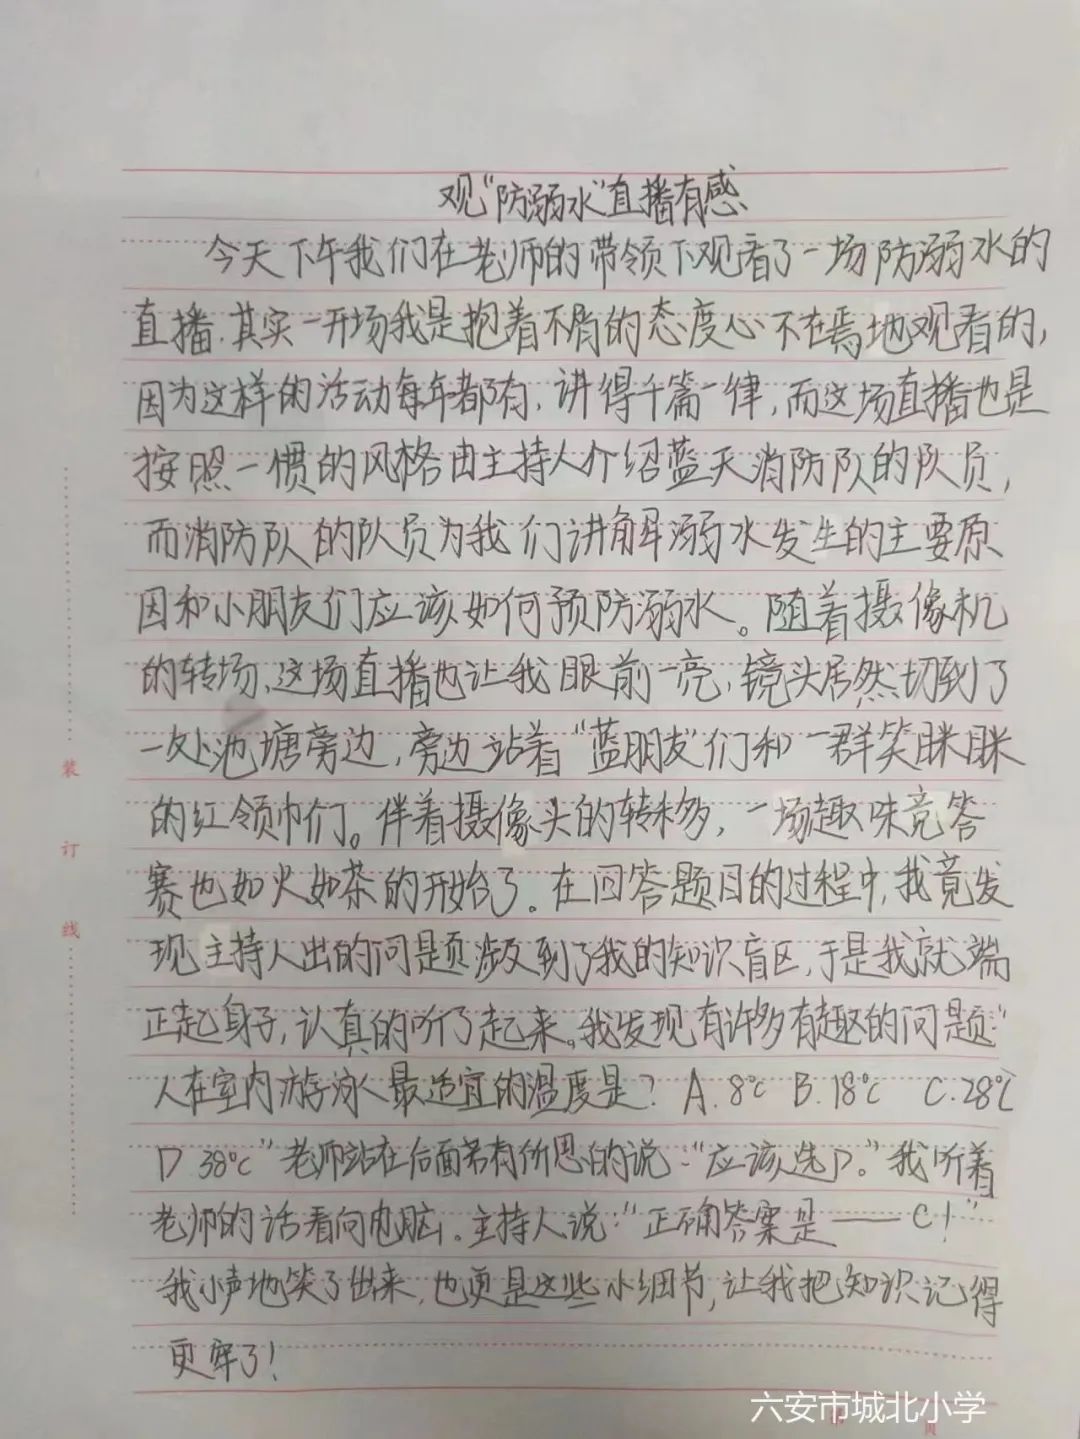 观“防溺水”直播有感
今天下午我们在老师的带领下观看了一场防溺水的
直播.其实一开场我是抱着不屑的态度心不在焉地观看的,
因为这样的活动每年都有,讲得千篇一律,而这场直播也是
按照一惯的风格由主持人介绍蓝天消防队的队员,
而消防队的队员为我们讲解溺水发生的主要原
因和小朋友们应该如何预防溺水。随着摄像机
的转场,这场直播也让我眼前一亮,镜头居然切到了
一处池塘旁边,旁边站着“蓝朋友”们和一群笑眯眯
的红领巾们。伴着摄像头的转移,一场趣味竞答
赛也如火如荼的开始了。在回答题目的过程中,我竟发
现主持人出的问题涉及到了我的知识盲区,于是我就端
正起身子,认真的听了起来。我发现有许多有趣的问题:“
人在室内游泳人最适宜的温度是? A.8℃ B.18℃ C.28℃
D 38℃”老师站在后面若有所思的说:“应该选D。”我听着
老师的话看向电脑。主持人说:“正确答案是——C!”
我小声地笑了出来,也更是这些小细节,让我把知识记得
更牢了!
装
订
线
六安市城北小学
第 页